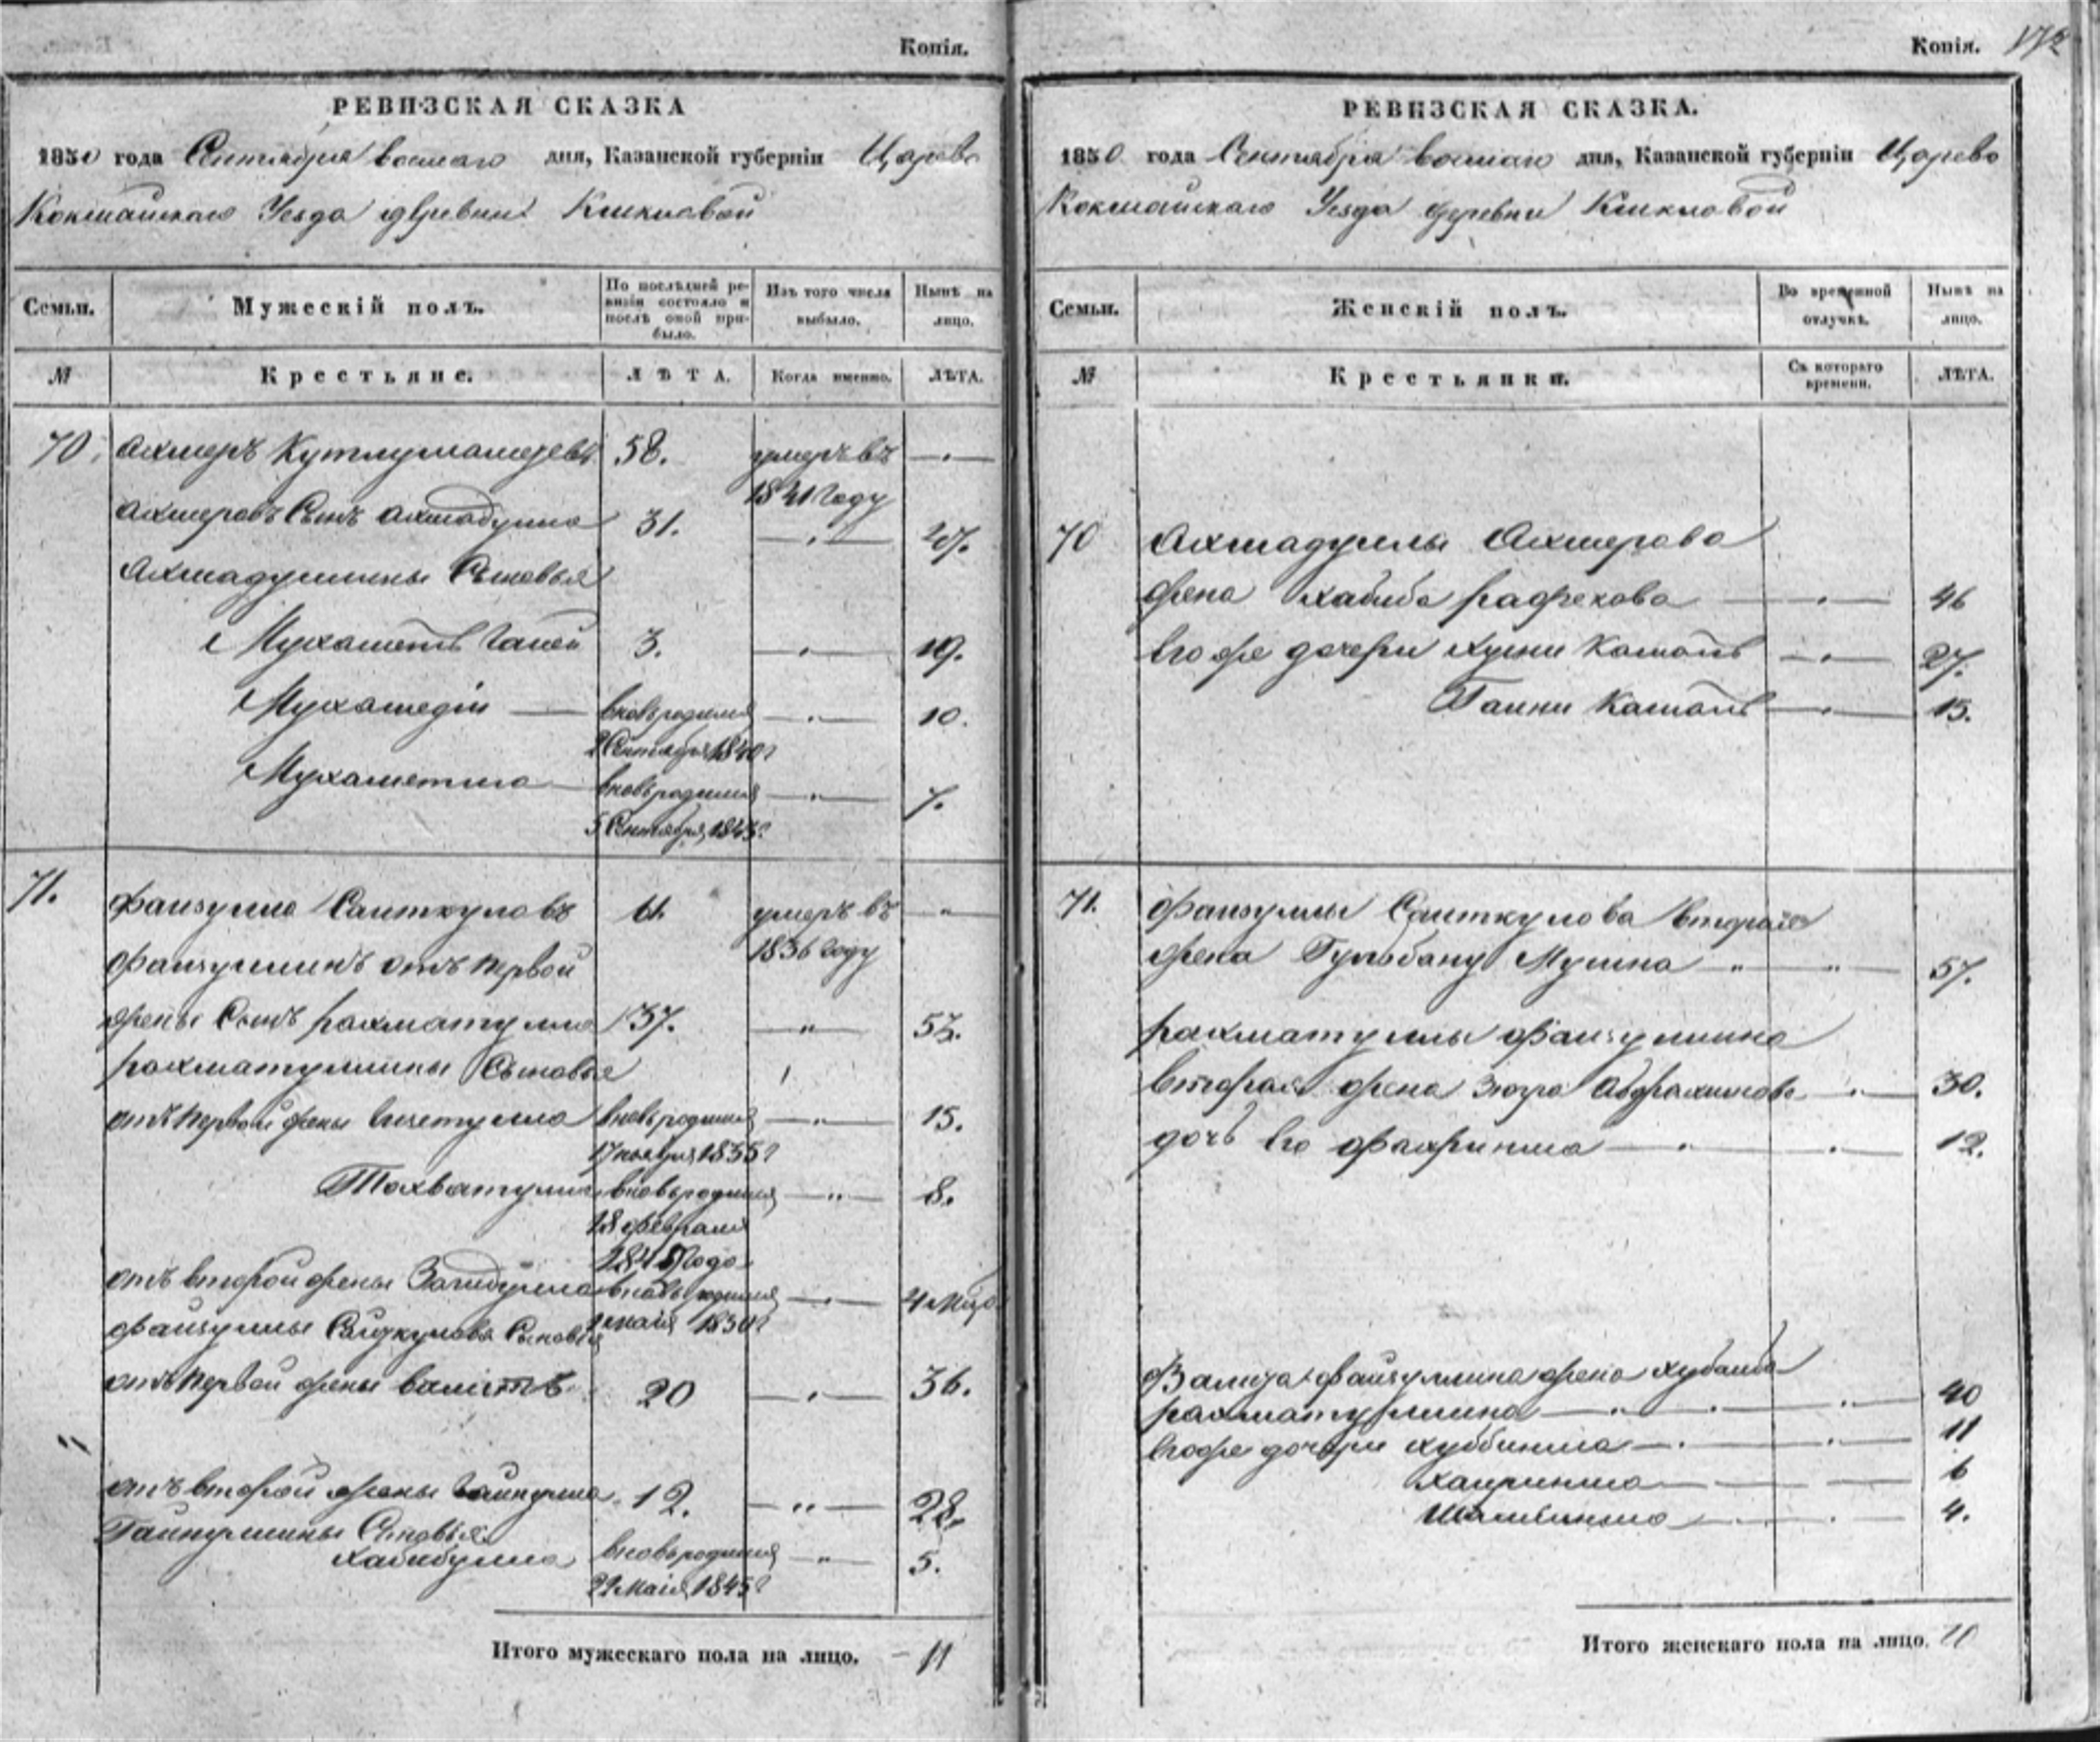 Копія.
РЕВИЗСКАЯ СКАЗКА
1850 года Сентября восмаго дня, Казанской губерніи Царево
Кокшайскаго Уезда деревни
Семьи.
Мужескій полъ.
По послѣдней ре-
визіи состояло и
послѣ оной при-
было.
Изъ того числа
выбыло.
Нынѣ на
лицо.
№
Крестьяне.
ЛѢТА.
Когда именно.
ЛѢТА.
70. Ахмеръ Кутлумаметевъ 58. умеръ въ
1841 году
Ахмеровъ Сынъ Ахмадулла 31. 47.
Ахмадуллины Сыновья
Мухаметъ Галей 3. 19.
Мухамедiи вновь родился 10.
2 Сентября 1840 г
вновь родился 7.
5 Сентября 1843 г
71. Фаизулла Саиткуловъ 61. умеръ въ
1836 году
Фаизуллинъ отъ первой
жены Сынъ рахматулла 37. 53.
рахматуллины Сыновья
отъ первой жены вновь родился 15.
17 ноября 1835 г
Тохватулла вновь родился 8.
18 февраля
года
отъ второй жены вновь родился 4 мца
1 маія 1850 г
Фаизуллы Саидкулова Сыновья
отъ первой жены валитъ 20 36.
отъ второй жены Гайнулла 12. 28.
Гайнуллины Сыновья
Хабибулла вновь родился 5.
маія 1845 г
Итого мужескаго пола на лицо. 11
Копія. 172
РЕВИЗСКАЯ СКАЗКА.
1850 года Сентября восмаго дня, Казанской губерніи Царево
Кокшайскаго Уезда деревни
Семьи.
Женскій полъ.
Во временной
отлучкѣ.
Нынѣ на
лицо.
№
Крестьянки.
Съ котораго
времени.
ЛѢТА.
70 Ахмадуллы Ахмерова
жена Хабиба 46
Его же дочери Камалъ 27.
Камалъ 15.
71. Фаизуллы Саиткулова вторая
жена Гульбану Мулина 57.
рахматуллы Фаизуллина
вторая жена Зюгра Абдрахимова 30.
дочь Его 12.
Валита Файзуллина жена
рахматуллина 40
Его же дочери 11
6
4.
Итого женскаго пола на лицо. 10